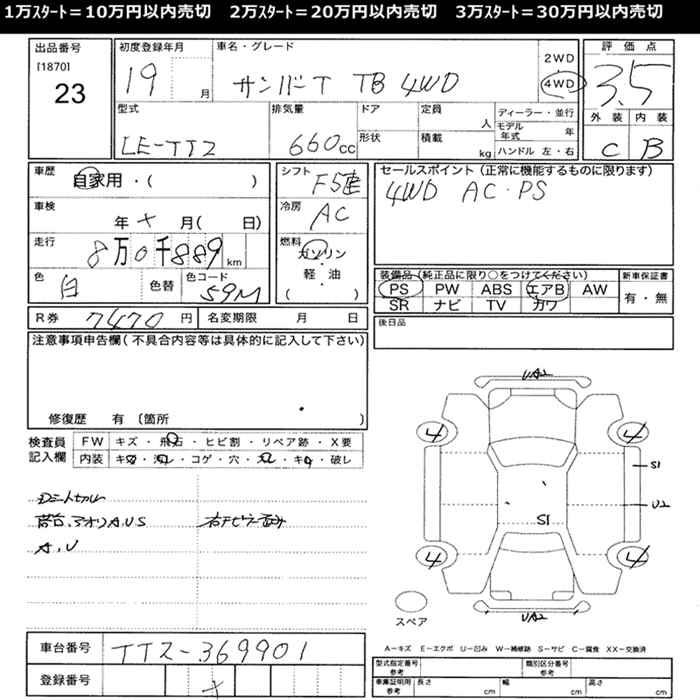 1万スタート＝10万円以内売切　2万スタート＝20万円以内売切　3万スタート＝30万円以内売切
出品番号
[1870]
23
初度登録年月
19 月
車名・グレード
サンバーT TB 4WD
2WD
4WD
評価点
3.5
外装 内装
C B
型式
LE-TT2
排気量
660cc
ドア
形状
定員 人
積載 kg
ディーラー・並行
モデル年式 年
ハンドル 左・右
車歴
自家用・( )
車検
年 月( 日)
走行
8万0千889km
色
白
色替
色コード
59M
シフト
F5
冷房
AC
燃料
ガソリン
・
軽・油
( )
セールスポイント (正常に機能するものに限ります)
4WD AC・PS
装備品(純正品に限り○をつけてください)
PS PW ABS エアB AW
SR ナビ TV カワ
新車保証書
有・無
後日品
R券 7470円 名変期限 月 日
注意事項申告欄(不具合内容等は具体的に記入して下さい)
修復歴 有 〔箇所 〕
検査員記入欄
FW キズ・飛石・ヒビ割・リペア跡・X要
内装 キズ・汚レ・コゲ・穴・スレ・キレ・破レ
A、U
UA2
4 4
S1
U2
S1
4 4
UA2
スペア
車台番号 TT2-369901
登録番号
A－キズ E－エクボ U－凹み W－補修跡 S－サビ C－腐食 XX－交換済
型式指定番号 参考
類別区分番号 参考
車庫証明用 参考 長さ cm 幅 cm 高さ cm